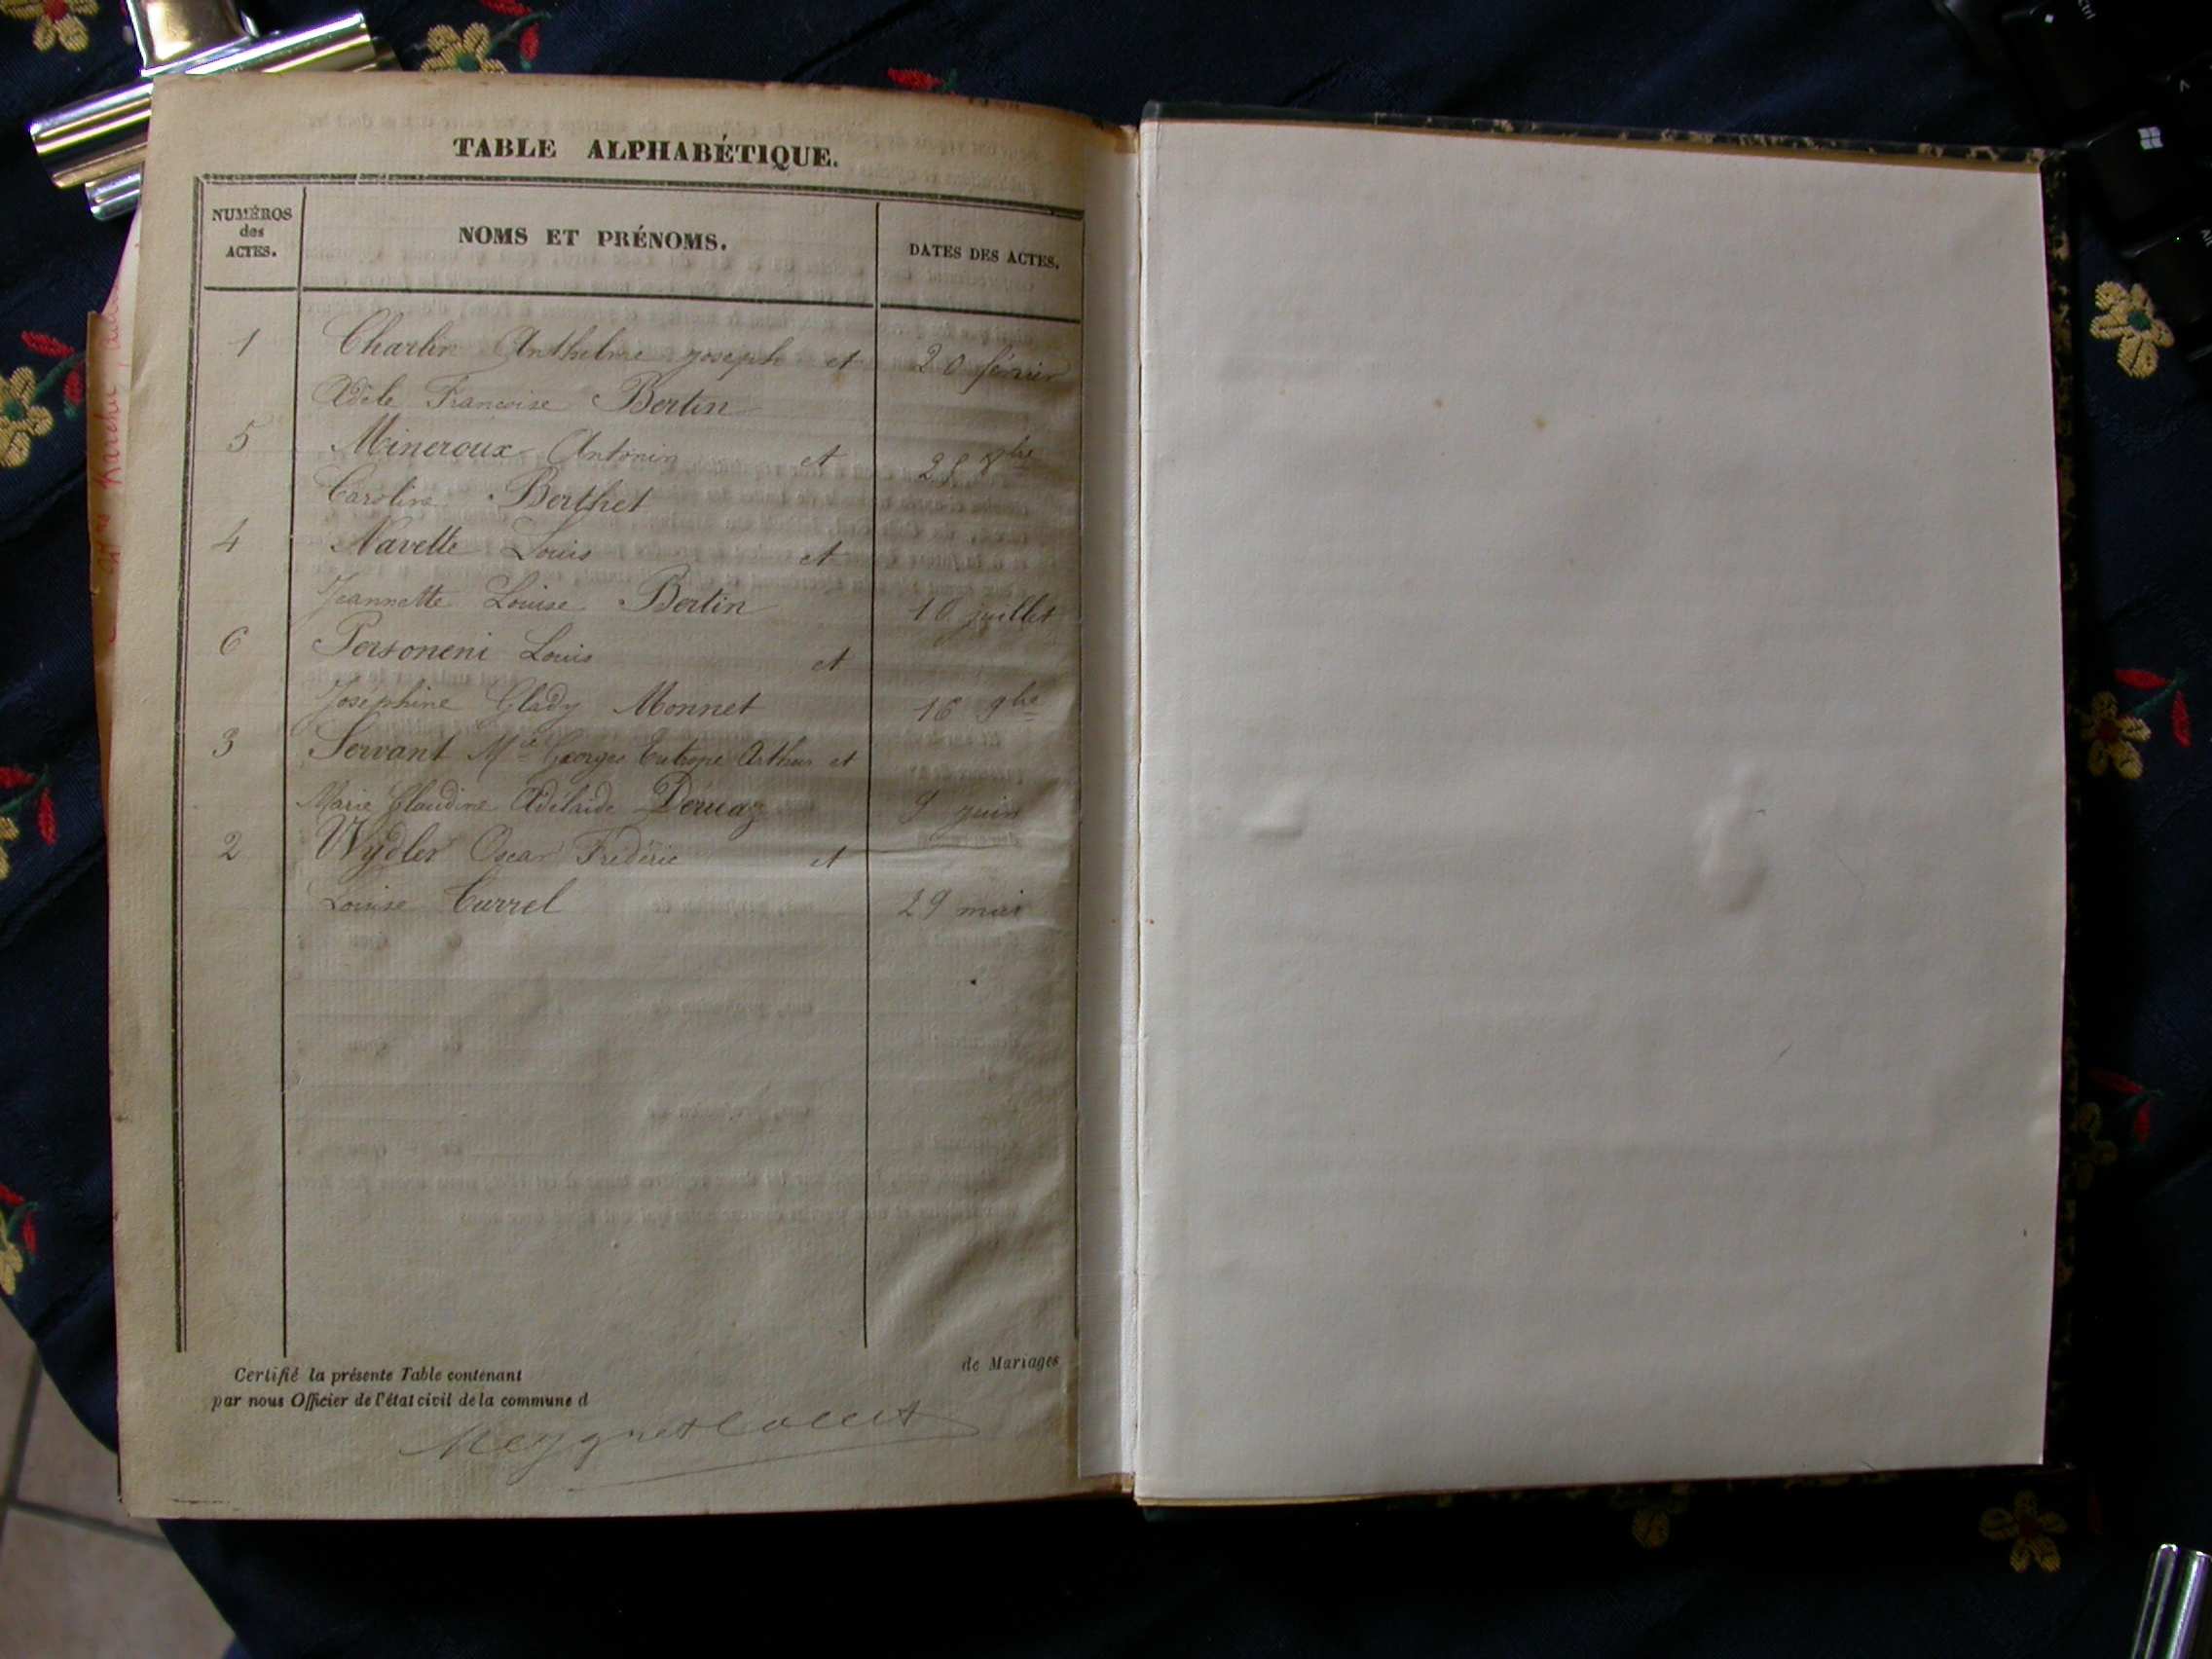 TABLE ALPHABÉTIQUE.
NUMÉROS
des
ACTES.
NOMS ET PRÉNOMS.
DATES DES ACTES.
1 Charlin Anthelme joseph et 20 février
Adèle Françoise Bertin
5 Mineroux Antonin et 28 8bre
Caroline Berthet
4 Navette Louis et
Jeannette Louise Bertin 10 juillet
6 Personeni Louis et
Joséphine Glady Monnet 16 9bre
3 Servant Mce Georges Eutrope Arthur et
Marie Claudine Adélaïde Deruaz 9 juin
2 Wydler Oscar Frédéric et
Louise Currel 29 mai
Certifié la présente Table contenant de Mariages
par nous Officier de l'état civil de la commune d